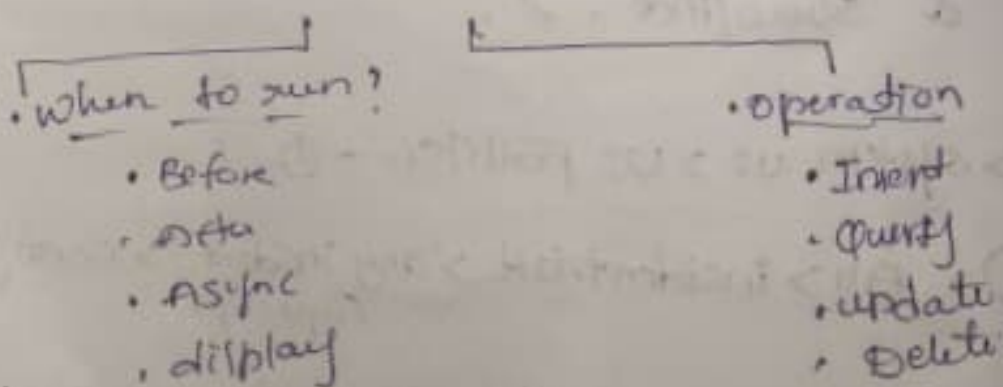 . When to run?
• Before
• After
• Async
• display
• operation
• Insert
• Query
• update
• Delete